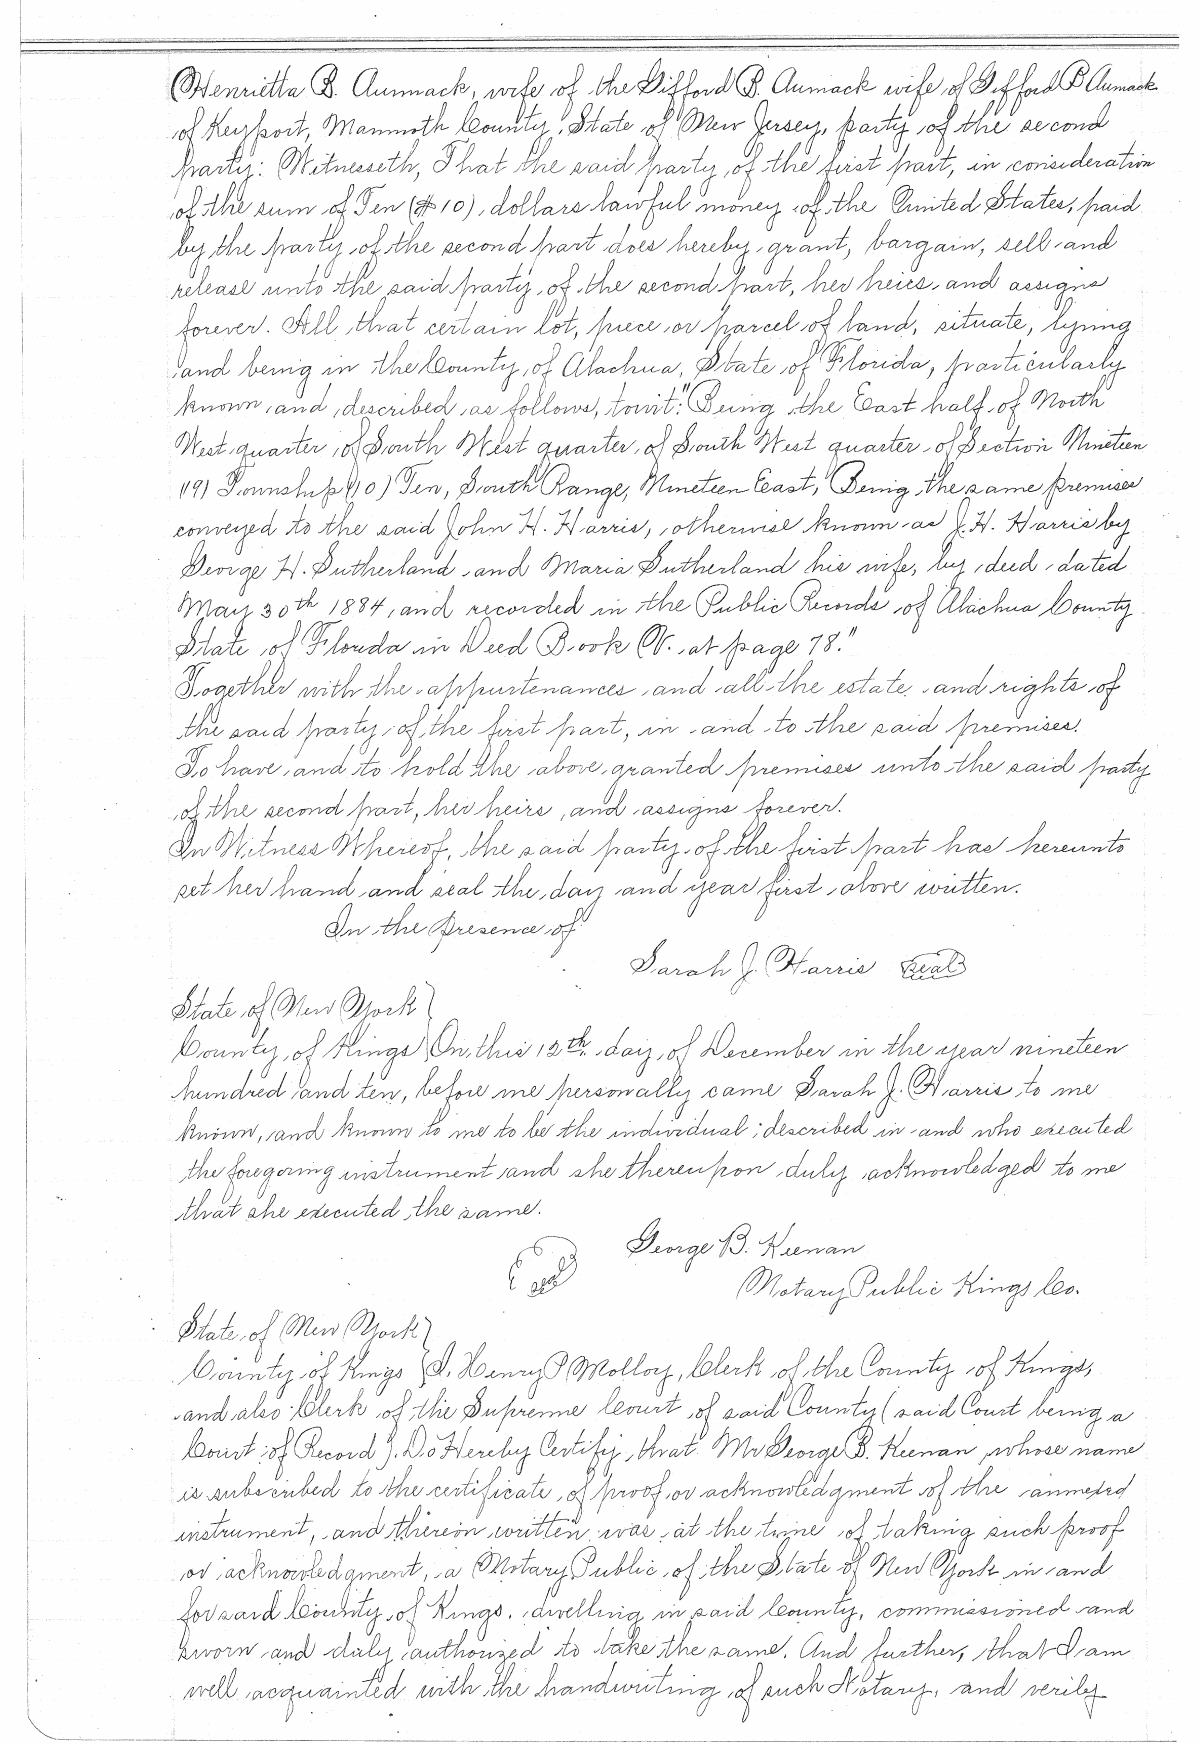 Henrietta B. Aumack, wife of the Gifford B. Aumack wife of Gifford B Aumack
of Keyport, Mammoth County, State of New Jersey, party of the second
party: Witnesseth, That the said party of the first part, in consideration
of the sum of Ten ($10), dollars lawful money of the United States, paid
by the party of the second part does hereby grant, bargain, sell and
release unto the said party of the second part, her heirs and assigns
forever. All that certain lot, piece or parcel of land, situate, lying
and being in the County of Alachua, State of Florida, particularly
known and described as follows, towit: "Being the East half of North
West quarter of South West quarter of South West quarter of Section Nineteen
(19) Township (10) Ten, South Range, Nineteen East, Being the same premises
conveyed to the said John H. Harris, otherwise known as J. H. Harris by
George H. Sutherland and Maria Sutherland his wife, by deed dated
May 30th 1884, and recorded in the Public Records of Alachua County
State of Florida in Deed Book V. at page 78."
Together with the appurtenances and all the estate and rights of
the said party of the first part, in and to the said premises.
To have and to hold the above granted premises unto the said party
of the second part, her heirs, and assigns forever.
In Witness Whereof, the said party of the first part has hereunto
set her hand and seal the day and year first above written.
In the Presence of
Sarah J. Harris Seal
State of New York
County of Kings On this 12th day of December in the year nineteen
hundred and ten, before me personally came Sarah J. Harris to me
known, and known to me to be the individual; described in and who executed
the foregoing instrument and she thereupon duly acknowledged to me
that she executed the same.
George B. Keenan
Seal Notary Public Kings Co.
State of New York
County of Kings I, Henry P Molloy, Clerk of the County of Kings,
and also Clerk of the Supreme Court of said County (said Court being a
Court of Record). Do Hereby Certify, that Mr George B. Keenan whose name
is subscribed to the certificate of proof or acknowledgment of the annexed
instrument, and thereon written was at the time of taking such proof
or acknowledgment, a Notary Public of the State of New York in and
for said County of Kings, dwelling in said County, commissioned and
sworn and duly authorized to take the same. And further, that I am
well acquainted with the handwriting of such Notary, and verily